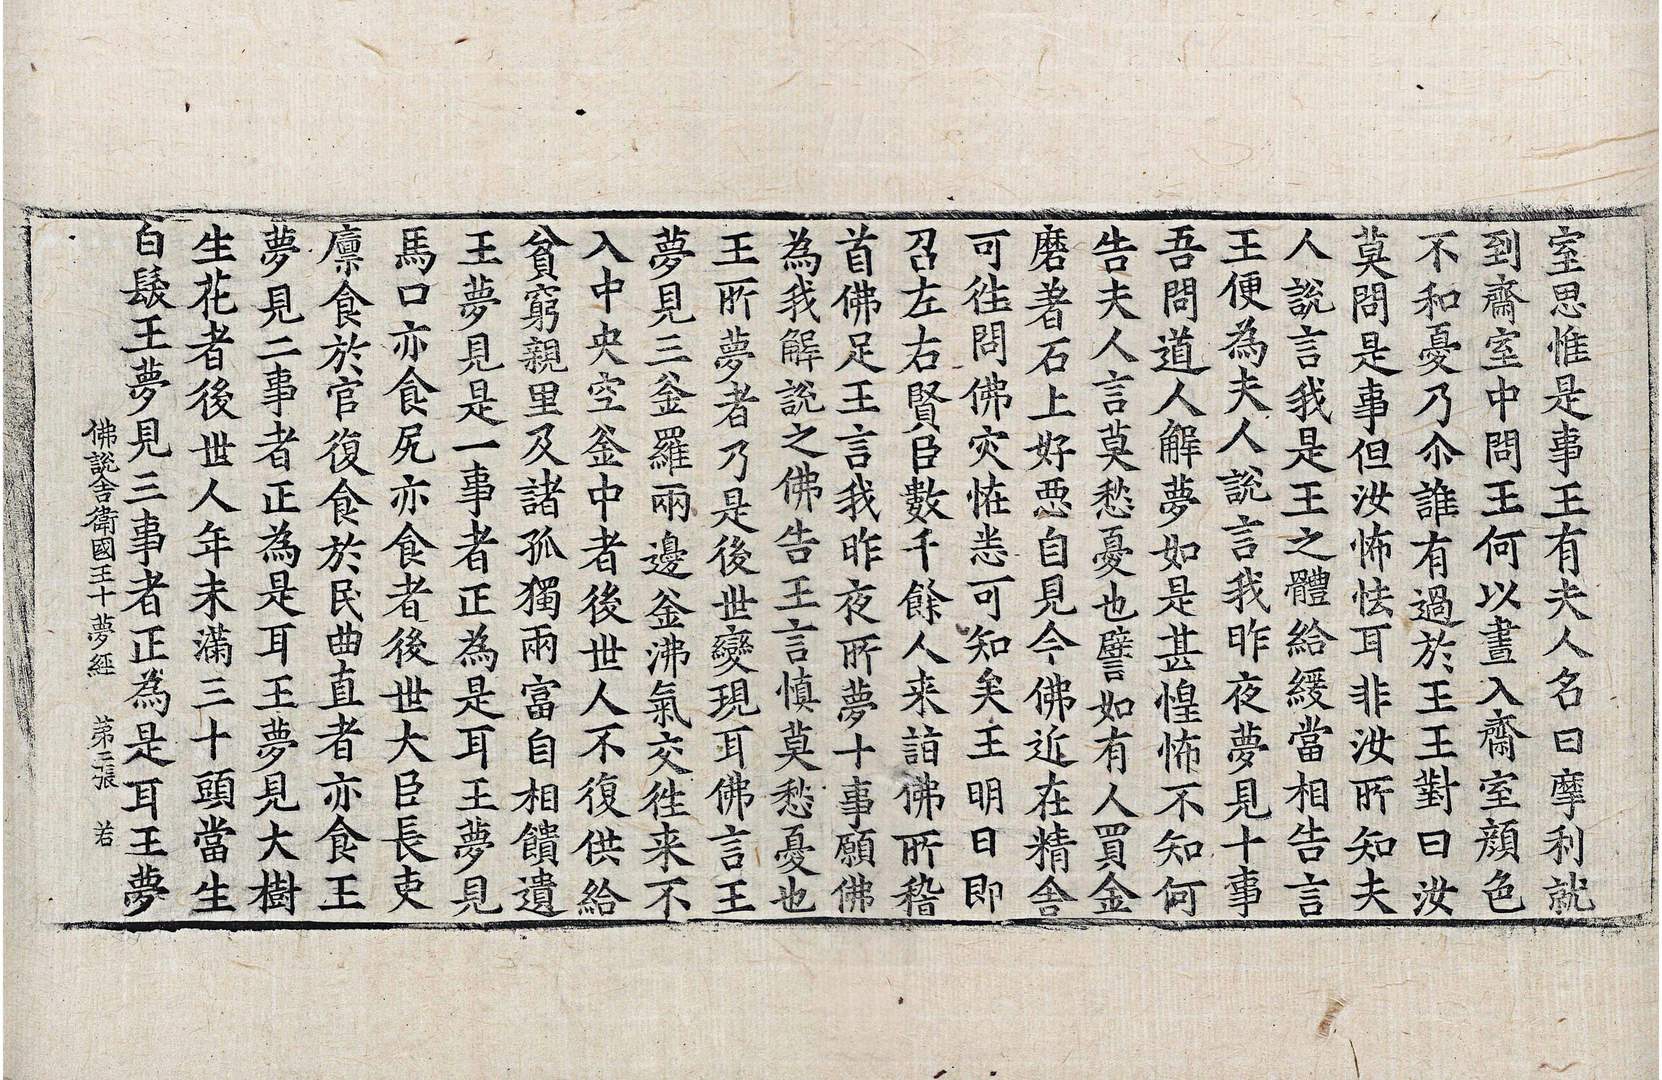 室思惟是事王有夫人名曰摩利就
到齋室中問王何以晝入齋室顏色
不和憂乃尒誰有過於王王對曰汝
莫問是事但汝怖怯耳非汝所知夫
人說言我是王之體給緩當相告言
王便為夫人說言我昨夜夢見十事
吾問道人解夢如是甚惶怖不知何
告夫人言莫愁憂也譬如有人買金
磨著石上好惡自見今佛近在精舍
可徃問佛灾恠悉可知矣王明日即
召左右賢臣數千餘人来詣佛所稽
首佛足王言我昨夜所夢十事願佛
為我解說之佛告王言慎莫愁憂也
王所夢者乃是後世變現耳佛言王
夢見三釜羅兩邊釜沸氣交徃来不
入中央空釜中者後世人不復供給
貧窮親里及諸孤獨兩富自相饋遺
王夢見是一事者正為是耳王夢見
馬口亦食尻亦食者後世大臣長吏
廩食於官復食於民曲直者亦食王
夢見二事者正為是耳王夢見大樹
生花者後世人年未滿三十頭當生
白髮王夢見三事者正為是耳王夢
佛說舍衛國王十夢經 第二張 若